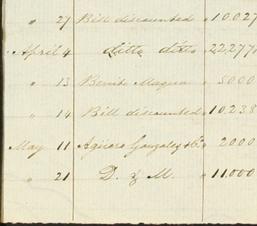 " 27 Bill discounted " 10.027
April 4 ditto ditto " 22,277
" 13 Benito " 5000
" 14 Bill discounted " 10.238
May 11 Gonzalez & Co. " 2000
" 21 D. & M. " 11.000